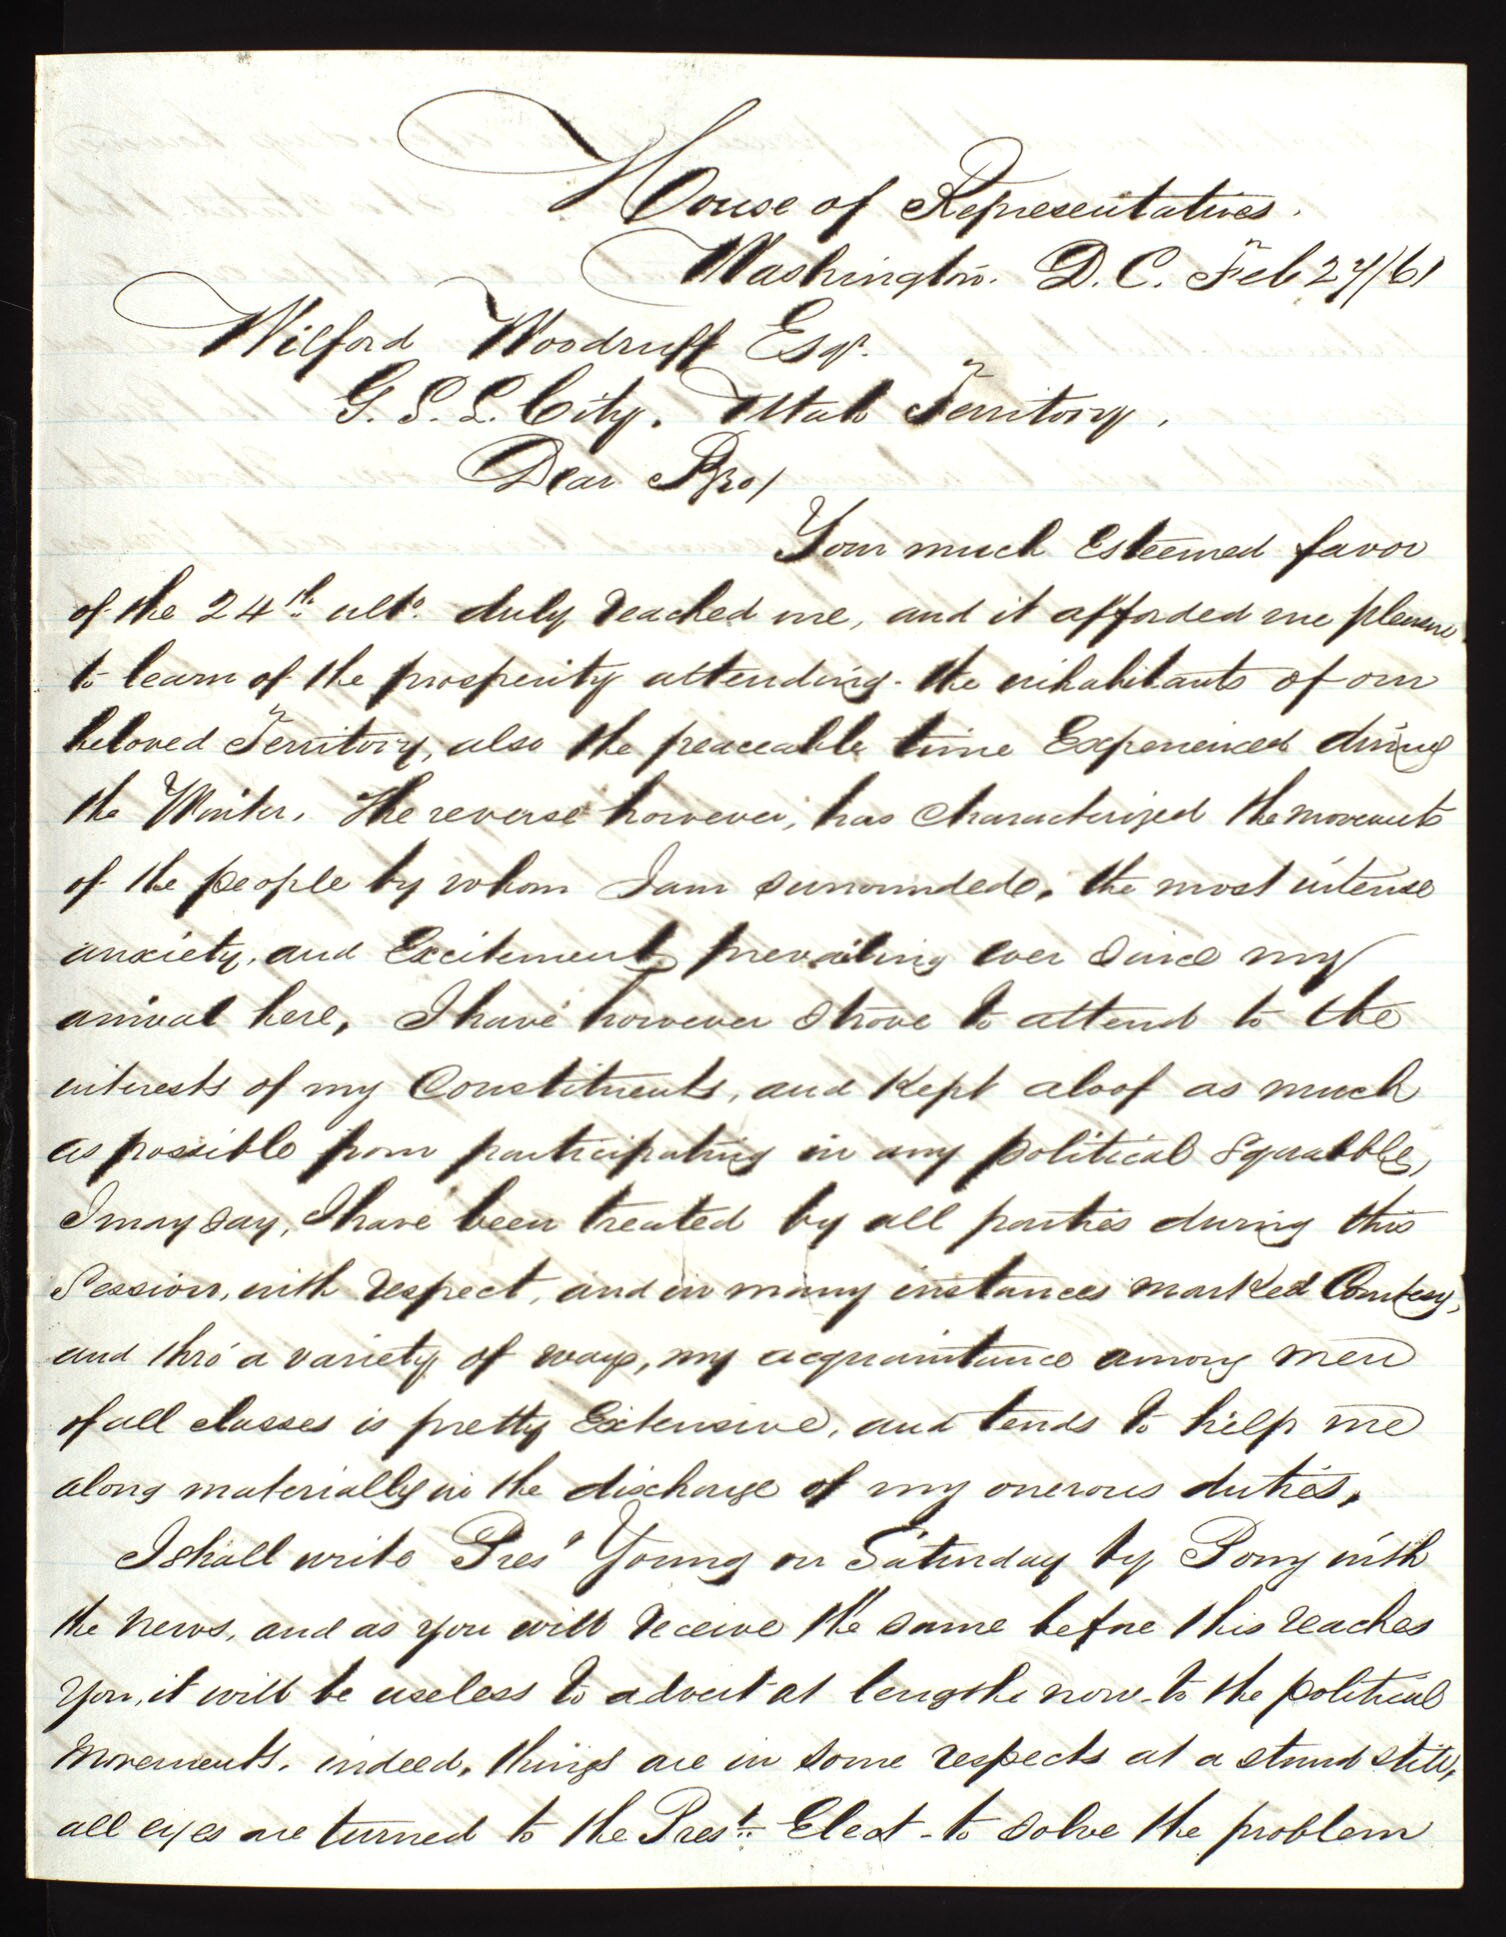 House of Representatives.
Washington. D. C. Feb 27/61
Wilford Woodruff Esqr.
G. S. L. City. Utah Territory,
Dear Bro/
Your much Esteemed favor
of the 24th ulto. duly reached me, and it afforded me pleasure
to learn of the prosperity attending the inhabitants of our
beloved Territory, also the peaceable time Experienced during
the Winter. The reverse however, has characterized the movements
of the people by whom I am surrounded, the most intense
anxiety, and Excitement prevailing ever since my
arrival here, I have however strove to attend to the
interests of my Constituents, and Kept aloof as much
as possible from participating in any political squabble,
I may say, I have been treated by all parties during this
Session, with respect, and in many instances marked Courtesy,
and thro' a variety of ways, my acquaintance among men
of all classes is pretty Extensive, and tends to help me
along materially in the discharge of my onerous duties,
I shall write Prest Young on Saturday by Pony with
the news, and as you will receive the same before this reaches
you, it will be useless to advert at length now to the political
movements. indeed, things are in some respects at a stand still,
all eyes are turned to the Prest. Elect - to solve the problem